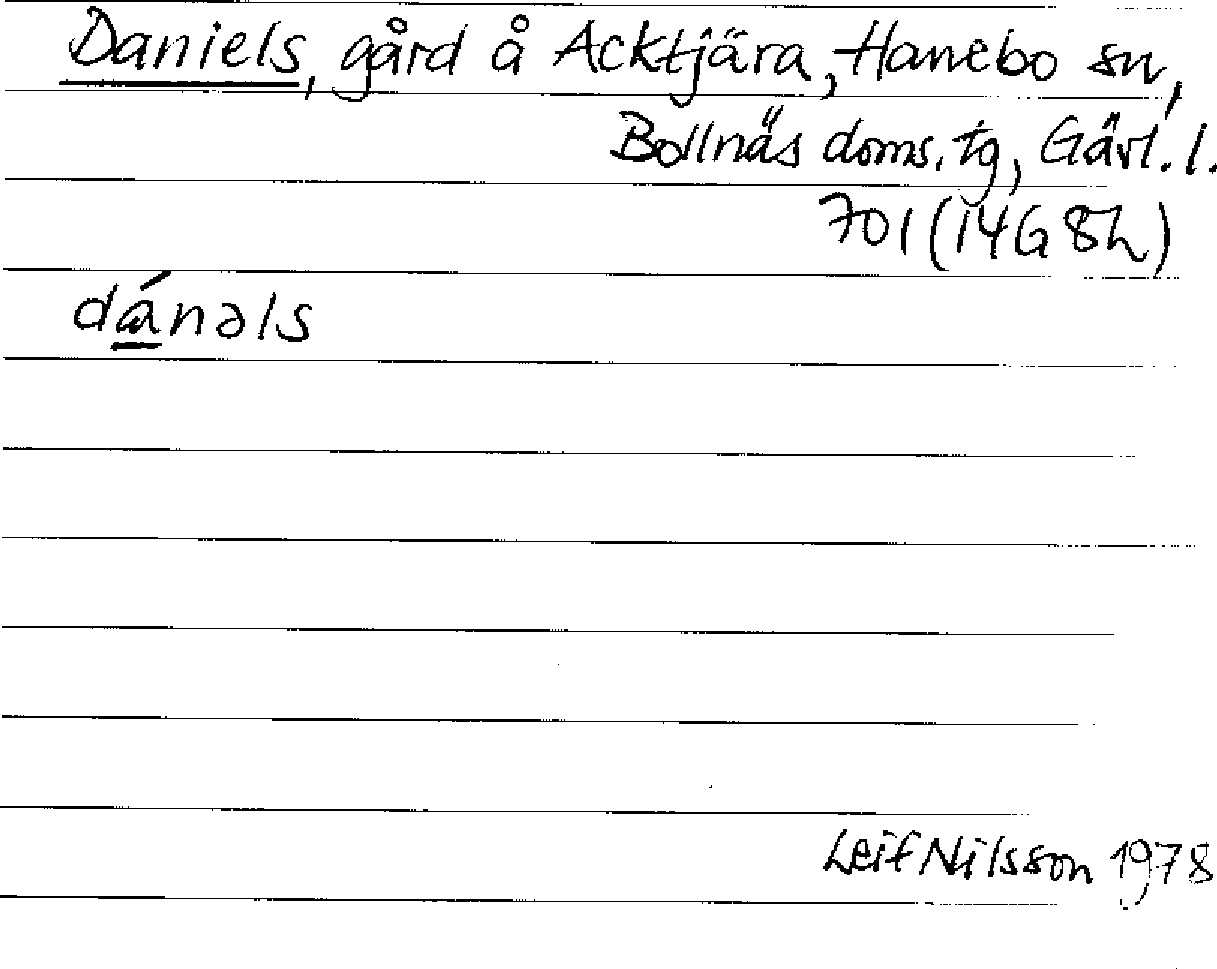 Daniels, gård å Acktjära, Hanebo sn,
Bollnäs doms. tg, Gävl. l.
701 (14G 8h)
dánəls
Leif Nilsson 1978